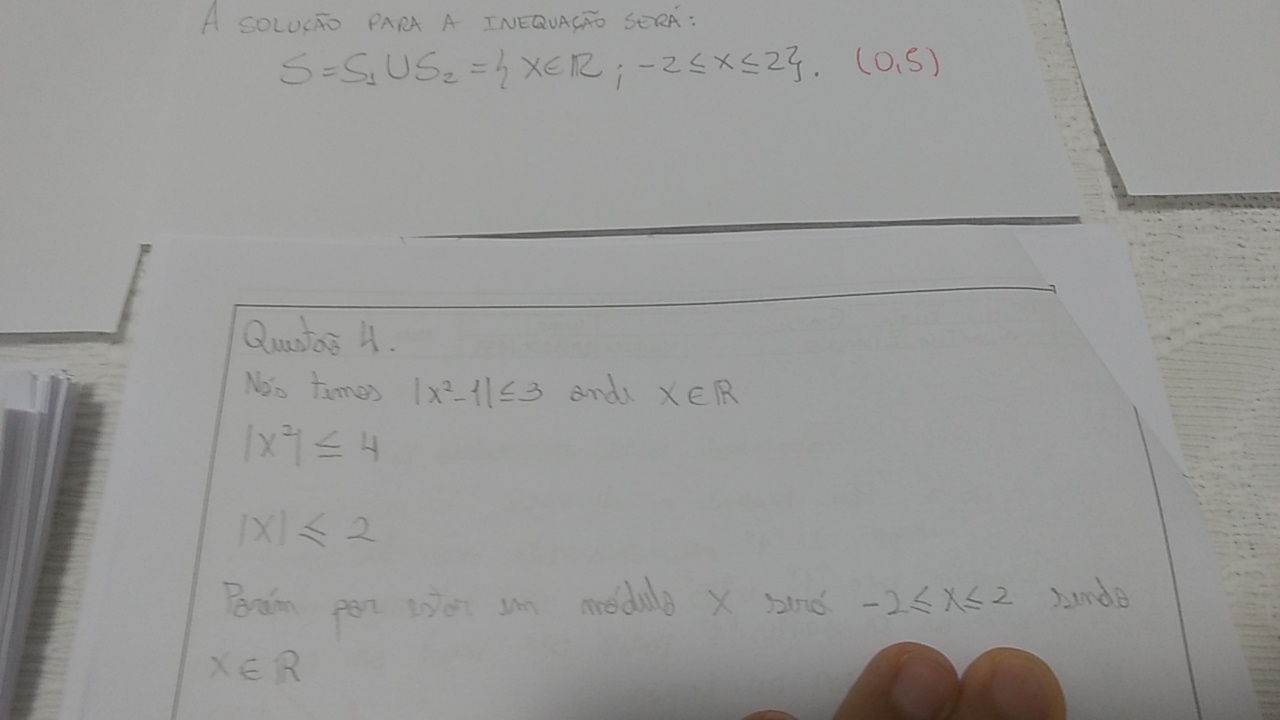 A SOLUÇÃO PARA A INEQUAÇÃO SERÁ:
S=S₁US₂={X∈ℝ; -2≤x≤2}. (0,5)
Questão 4.
Nós temos |x²-1|≤3 onde X∈ℝ
|x²| ≤ 4
|X| ≤ 2
Porém por estar em módulo X será -2≤X≤2 sendo
X∈ℝ